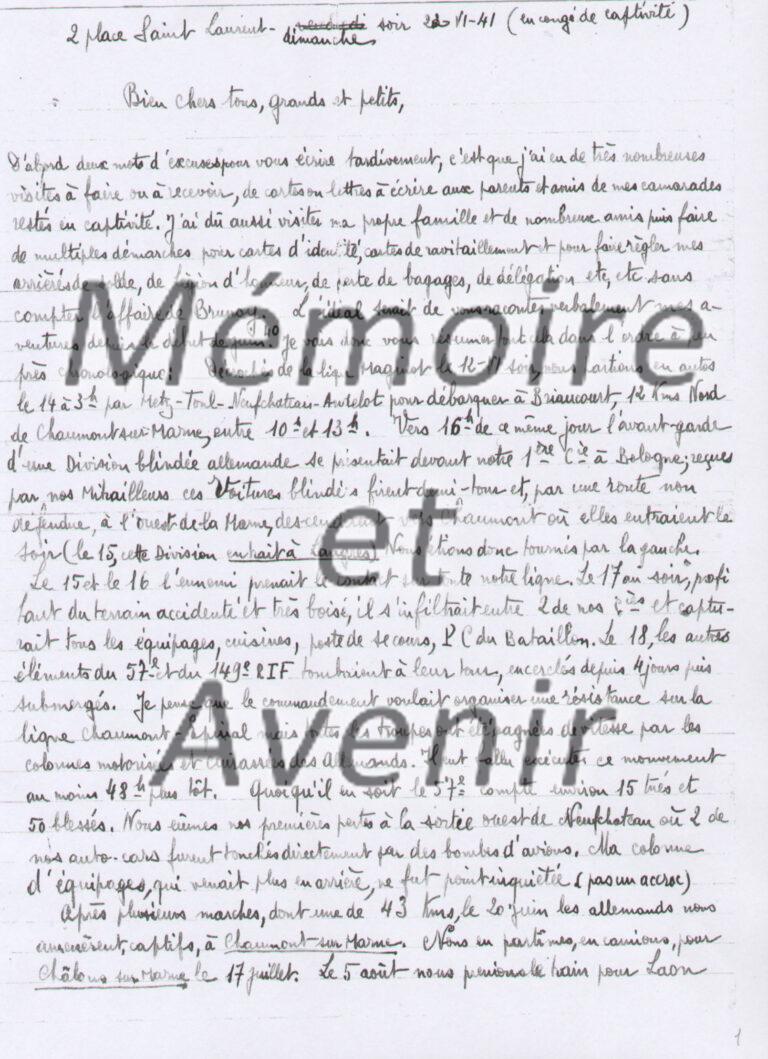 2 place Saint Laurent - vendredi soir 22-VI-41 (en congé de captivité)
dimanche
Bien chers tous, grands et petits,
D'abord deux mots d'excuses pour vous écrire tardivement, c'est que j'ai eu de très nombreuses
visites à faire ou à recevoir, de cartes ou lettres à écrire aux parents et amis de mes camarades
restés en captivité. J'ai dû aussi visiter ma propre famille et de nombreux amis puis faire
de multiples démarches pour cartes d'identité, cartes de ravitaillement et pour faire règler mes
arriérés de solde, de légion d'honneur, de perte de bagages, de délégation etc, etc sans
compter l'affaire de Brunoy. L'idéal serait de vous raconter verbalement mes a-
ventures depuis le début de juin 40. Je vais donc vous résumer tout cela dans l'ordre à peu
près chronologique: de la ligne Maginot le 12-VI soir, nous partions en autos
le 14 à 3h par Metz-Toul-Neufchateau-Andelot pour débarquer à Briaucourt, 12 Kms Nord
de Chaumont sur Marne, entre 10h et 13h. Vers 16h de ce même jour l'avant-garde
d'une Division blindée allemande se présentait devant notre 1ère Cie à Bologne; reçues
par nos Mitrailleurs ces Voitures blindées firent demi-tour et, par une route non
défendue, à l'ouest de la Marne, descendirent vers Chaumont où elles entraient le
soir (le 15, cette Division entrait à Langres) Nous étions donc tournés par la gauche.
Le 15 et le 16 l'ennemi prenait le contact sur toute notre ligne. Le 17 au soir, profi
tant du terrain accidenté et très boisé, il s'infiltrait entre 2 de nos Cies et captu-
rait tous les équipages, cuisines, poste de secours, PC du Bataillon. Le 18, les autres
éléments du 57e et du 149e RIF tombaient à leur tour, encerclés depuis 4 jours puis
submergés. Je pense que le commandement voulait organiser une résistance sur la
ligne Chaumont-Epinal mais toutes les troupes ont été gagnées de vitesse par les
colonnes motorisées et cuirassées des Allemands. Il eut fallu exécuter ce mouvement
au moins 48h plus tôt. Quoiqu'il en soit le 57e compte environ 15 tués et
50 blessés. Nous eûmes nos premières pertes à la sortie ouest de Neufchateau où 2 de
nos auto-cars furent touchés directement par des bombes d'avions. Ma colonne
d'équipages, qui venait plus en arrière, ne fut point inquiétée (pas un accroc)
Après plusieurs marches, dont une de 43 Kms, le 20 Juin les allemands nous
amenèrent, captifs, à Chaumont sur Marne. Nous en partîmes, en camions, pour
Châlons sur Marne le 17 juillet. Le 5 août nous prenions le train pour Laon
1
Mémoire
et
Avenir